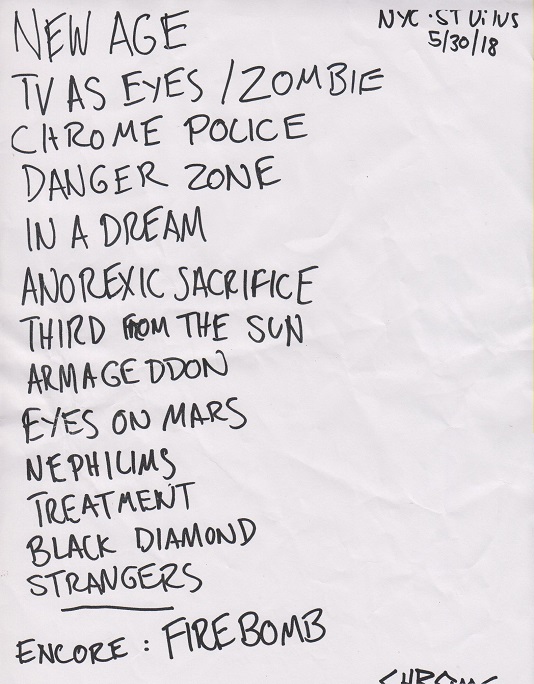 NEW AGE
NYC · ST ViTUS
5/30/18
TV AS EYES / ZOMBIE
CHROME POLICE
DANGER ZONE
IN A DREAM
ANOREXIC SACRIFICE
THIRD FROM THE SUN
ARMAGEDDON
EYES ON MARS
NEPHILIMS
TREATMENT
BLACK DIAMOND
STRANGERS
ENCORE : FIREBOMB
CHROME